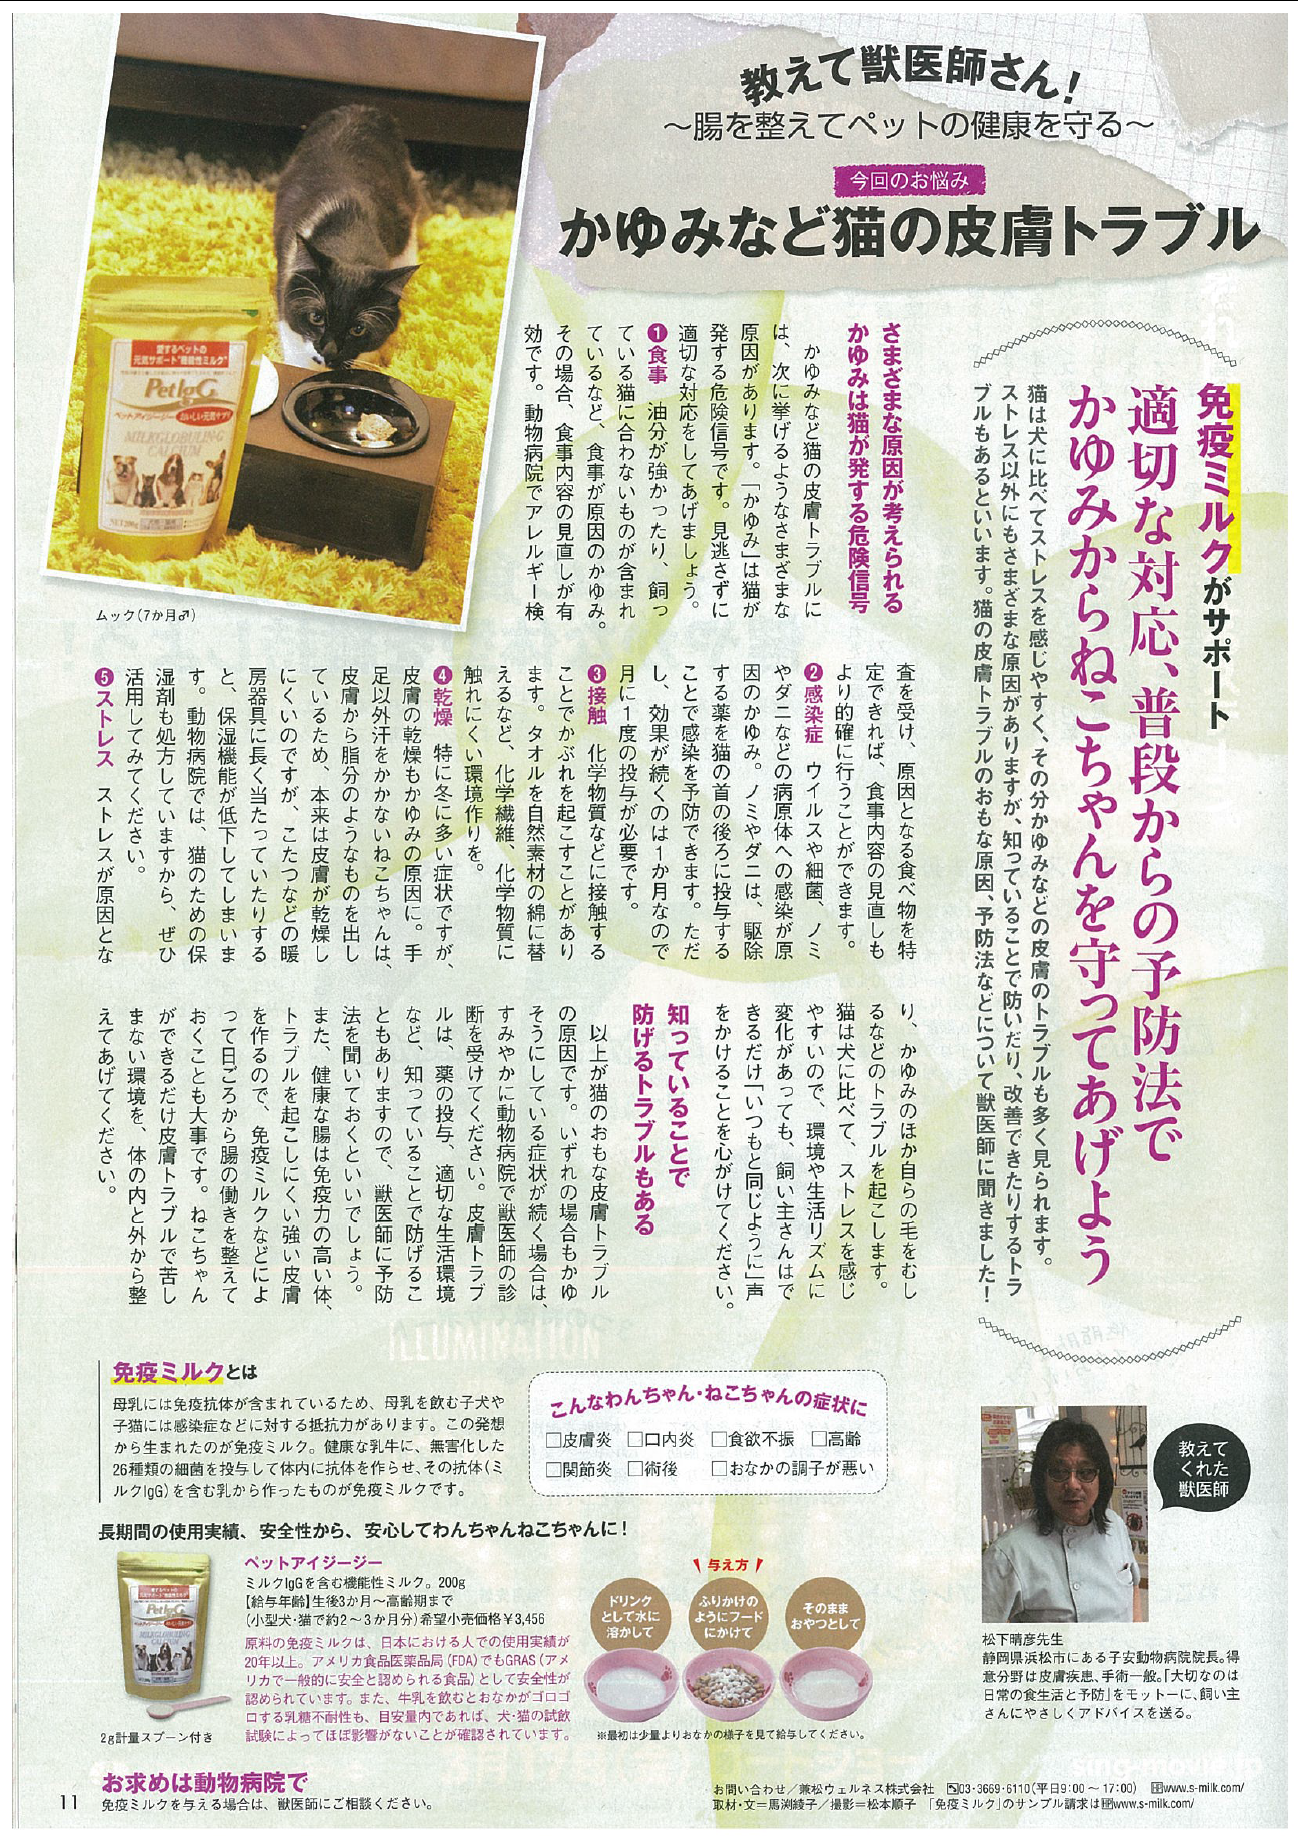 教えて獣医師さん!
～腸を整えてペットの健康を守る～
今回のお悩み
かゆみなど猫の皮膚トラブル
免疫ミルクがサポート
適切な対応、普段からの予防法で
かゆみからねこちゃんを守ってあげよう
猫は犬に比べてストレスを感じやすく、その分かゆみなどの皮膚のトラブルも多く見られます。
ストレス以外にもさまざまな原因がありますが、知っていることで防いだり、改善できたりするトラ
ブルもあるといいます。猫の皮膚トラブルのおもな原因、予防法などについて獣医師に聞きました!
さまざまな原因が考えられる
かゆみは猫が発する危険信号
かゆみなど猫の皮膚トラブルに
は、次に挙げるようなさまざまな
原因があります。「かゆみ」は猫が
発する危険信号です。見逃さずに
適切な対応をしてあげましょう。
❶食事 油分が強かったり、飼っ
ている猫に合わないものが含まれ
ているなど、食事が原因のかゆみ。
その場合、食事内容の見直しが有
効です。動物病院でアレルギー検
査を受け、原因となる食べ物を特
定できれば、食事内容の見直しも
より的確に行うことができます。
❷感染症 ウイルスや細菌、ノミ
やダニなどの病原体への感染が原
因のかゆみ。ノミやダニは、駆除
する薬を猫の首の後ろに投与する
ことで感染を予防できます。ただ
し、効果が続くのは1か月なので
月に1度の投与が必要です。
❸接触 化学物質などに接触する
ことでかぶれを起こすことがあり
ます。タオルを自然素材の綿に替
えるなど、化学繊維、化学物質に
触れにくい環境作りを。
❹乾燥 特に冬に多い症状ですが、
皮膚の乾燥もかゆみの原因に。手
足以外汗をかかないねこちゃんは、
皮膚から脂分のようなものを出し
ているため、本来は皮膚が乾燥し
にくいのですが、こたつなどの暖
房器具に長く当たっていたりする
と、保湿機能が低下してしまいま
す。動物病院では、猫のための保
湿剤も処方していますから、ぜひ
活用してみてください。
❺ストレス ストレスが原因とな
り、かゆみのほか自らの毛をむし
るなどのトラブルを起こします。
猫は犬に比べて、ストレスを感じ
やすいので、環境や生活リズムに
変化があっても、飼い主さんはで
きるだけ「いつもと同じように」声
をかけることを心がけてください。
知っていることで
防げるトラブルもある
以上が猫のおもな皮膚トラブル
の原因です。いずれの場合もかゆ
そうにしている症状が続く場合は、
すみやかに動物病院で獣医師の診
断を受けてください。皮膚トラブ
ルは、薬の投与、適切な生活環境
など、知っていることで防げるこ
ともありますので、獣医師に予防
法を聞いておくといいでしょう。
また、健康な腸は免疫力の高い体、
トラブルを起こしにくい強い皮膚
を作るので、免疫ミルクなどによ
って日ごろから腸の働きを整えて
おくことも大事です。ねこちゃん
ができるだけ皮膚トラブルで苦し
まない環境を、体の内と外から整
えてあげてください。
愛するペットの
元気サポート"機能性ミルク"
PetIgG
ペットアイジージー おいしい元気サプリ
MILKGLOBULIN-G
CALCIUM
ムック(7か月♂)
免疫ミルクとは
母乳には免疫抗体が含まれているため、母乳を飲む子犬や
子猫には感染症などに対する抵抗力があります。この発想
から生まれたのが免疫ミルク。健康な乳牛に、無害化した
26種類の細菌を投与して体内に抗体を作らせ、その抗体(ミ
ルクIgG)を含む乳から作ったものが免疫ミルクです。
こんなわんちゃん・ねこちゃんの症状に
□皮膚炎 □口内炎 □食欲不振 □高齢
□関節炎 □術後 □おなかの調子が悪い
長期間の使用実績、安全性から、安心してわんちゃんねこちゃんに!
PetIgG
2g計量スプーン付き
ペットアイジージー
ミルクIgGを含む機能性ミルク。200g
【給与年齢】生後3か月～高齢期まで
(小型犬・猫で約2～3か月分)希望小売価格¥3,456
原料の免疫ミルクは、日本における人での使用実績が
20年以上。アメリカ食品医薬品局(FDA)でもGRAS(アメ
リカで一般的に安全と認められる食品)として安全性が
認められています。また、牛乳を飲むとおなかがゴロゴ
ロする乳糖不耐性も、目安量内であれば、犬・猫の試飲
試験によってほぼ影響がないことが確認されています。
与え方
ドリンク
として水に
溶かして
ふりかけの
ようにフード
にかけて
そのまま
おやつとして
※最初は少量よりおなかの様子を見て給与してください。
教えて
くれた
獣医師
松下晴彦先生
静岡県浜松市にある子安動物病院院長。得
意分野は皮膚疾患、手術一般。「大切なのは
日常の食生活と予防」をモットーに、飼い主
さんにやさしくアドバイスを送る。
お求めは動物病院で
免疫ミルクを与える場合は、獣医師にご相談ください。
お問い合わせ/兼松ウェルネス株式会社 ☎03・3669・6110(平日9:00～17:00) HPwww.s-milk.com/
取材・文=馬渕綾子/撮影=松本順子 「免疫ミルク」のサンプル請求はHPwww.s-milk.com/
11